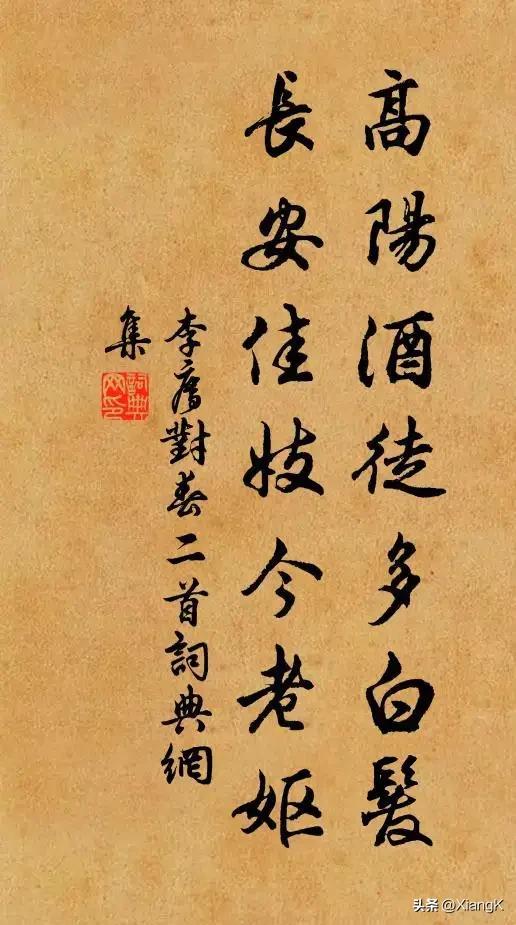 高陽酒徒多白髮
長安佳妓今老嫗
李廌對春二首詞典網
集
詞典
网印
头条 @XiangK